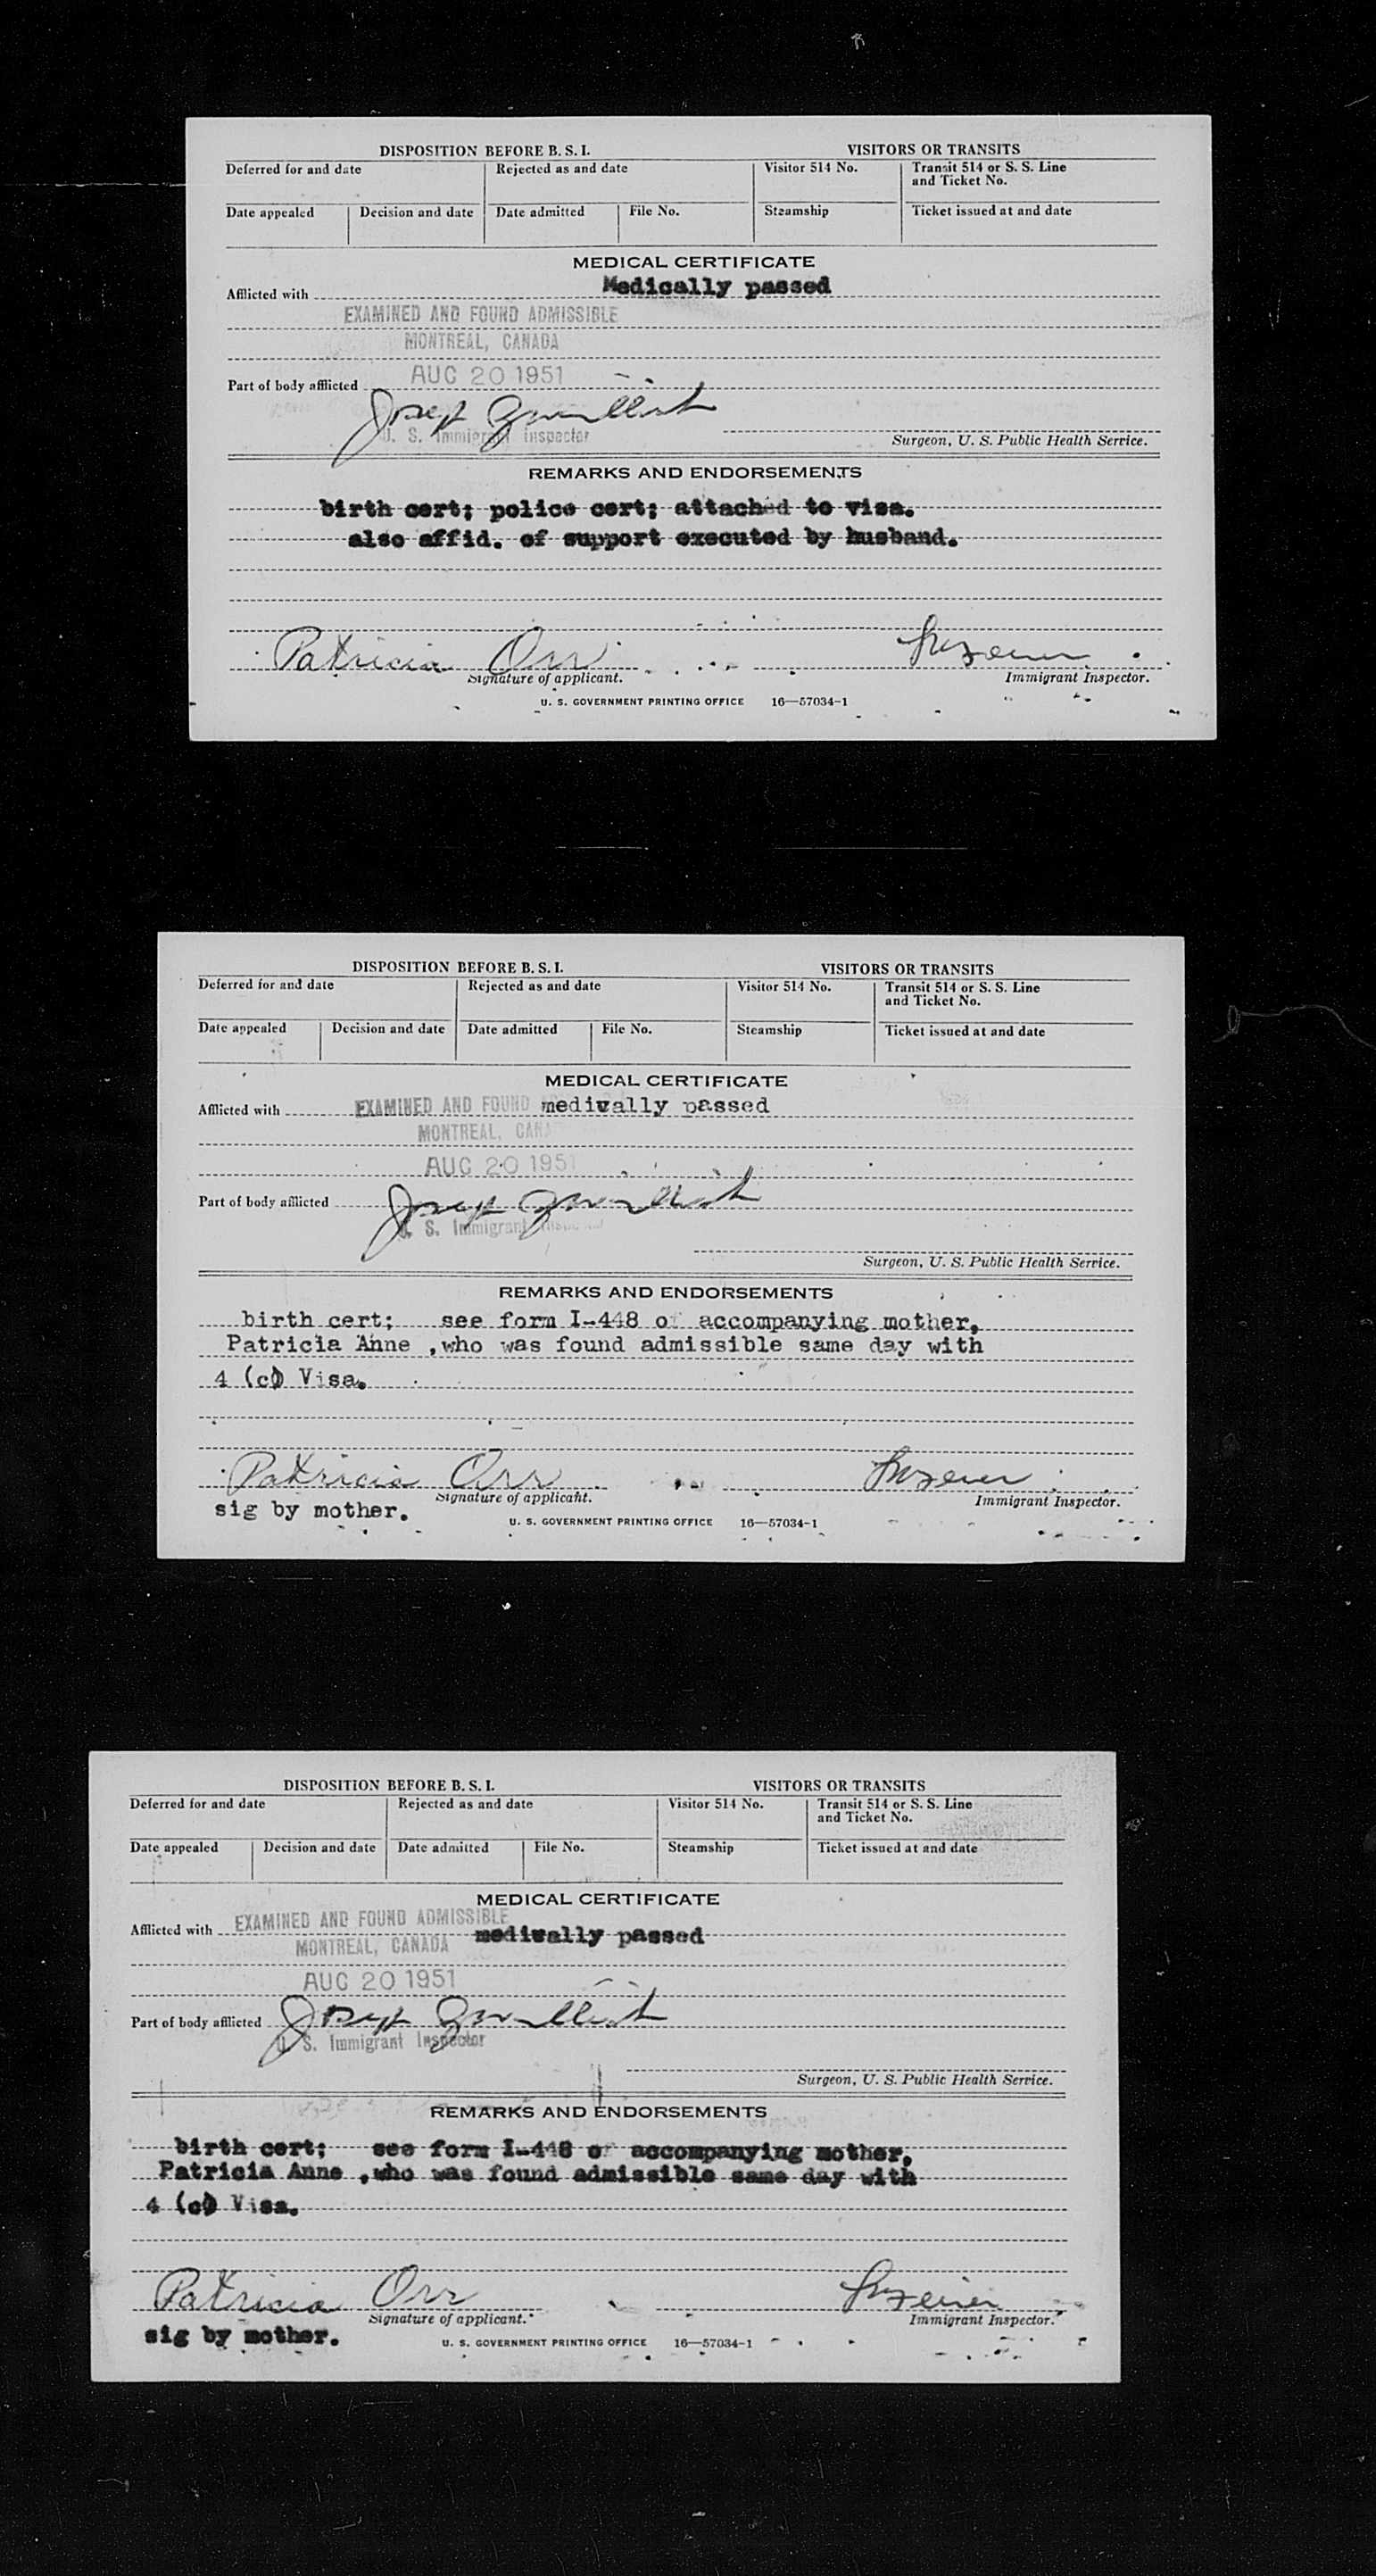 DISPOSITION BEFORE B. S. I. VISITORS OR TRANSITS
Deferred for and date Rejected as and date Visitor 514 No. Transit 514 or S. S. Line
and Ticket No.
Date appealed Decision and date Date admitted File No. Steamship Ticket issued at and date
MEDICAL CERTIFICATE
Afflicted with Medically passed
EXAMINED AND FOUND ADMISSIBLE
MONTREAL, CANADA
AUG 20 1951
Part of body afflicted
Joseph
U. S. Immigrant Inspector
Surgeon, U. S. Public Health Service.
REMARKS AND ENDORSEMENTS
birth cert; police cert; attached to visa.
also affid. of support executed by husband.
Patricia Orr
Signature of applicant. Immigrant Inspector.
U. S. GOVERNMENT PRINTING OFFICE 16—57034-1
DISPOSITION BEFORE B. S. I. VISITORS OR TRANSITS
Deferred for and date Rejected as and date Visitor 514 No. Transit 514 or S. S. Line
and Ticket No.
Date appealed Decision and date Date admitted File No. Steamship Ticket issued at and date
MEDICAL CERTIFICATE
Afflicted with EXAMINED AND FOUND medivally passed
MONTREAL, CANA
AUG 20 1951
Part of body afflicted Joseph
U. S. Immigrant
Surgeon, U. S. Public Health Service.
REMARKS AND ENDORSEMENTS
birth cert; see form I-448 of accompanying mother,
Patricia Anne ,who was found admissible same day with
4 (c) Visa.
Patricia Orr
Signature of applicant. Immigrant Inspector.
sig by mother.
U. S. GOVERNMENT PRINTING OFFICE 16—57034-1
DISPOSITION BEFORE B. S. I. VISITORS OR TRANSITS
Deferred for and date Rejected as and date Visitor 514 No. Transit 514 or S. S. Line
and Ticket No.
Date appealed Decision and date Date admitted File No. Steamship Ticket issued at and date
MEDICAL CERTIFICATE
EXAMINED AND FOUND ADMISSIBLE
Afflicted with medivally passed
MONTREAL, CANADA
AUG 20 1951
Part of body afflicted Joseph
U. S. Immigrant Inspector
Surgeon, U. S. Public Health Service.
REMARKS AND ENDORSEMENTS
birth cert; see form I-448 of accompanying mother,
Patricia Anne ,who was found admissible same day with
4 (c) Visa.
Patricia Orr
Signature of applicant. Immigrant Inspector.
sig by mother.
U. S. GOVERNMENT PRINTING OFFICE 16—57034-1